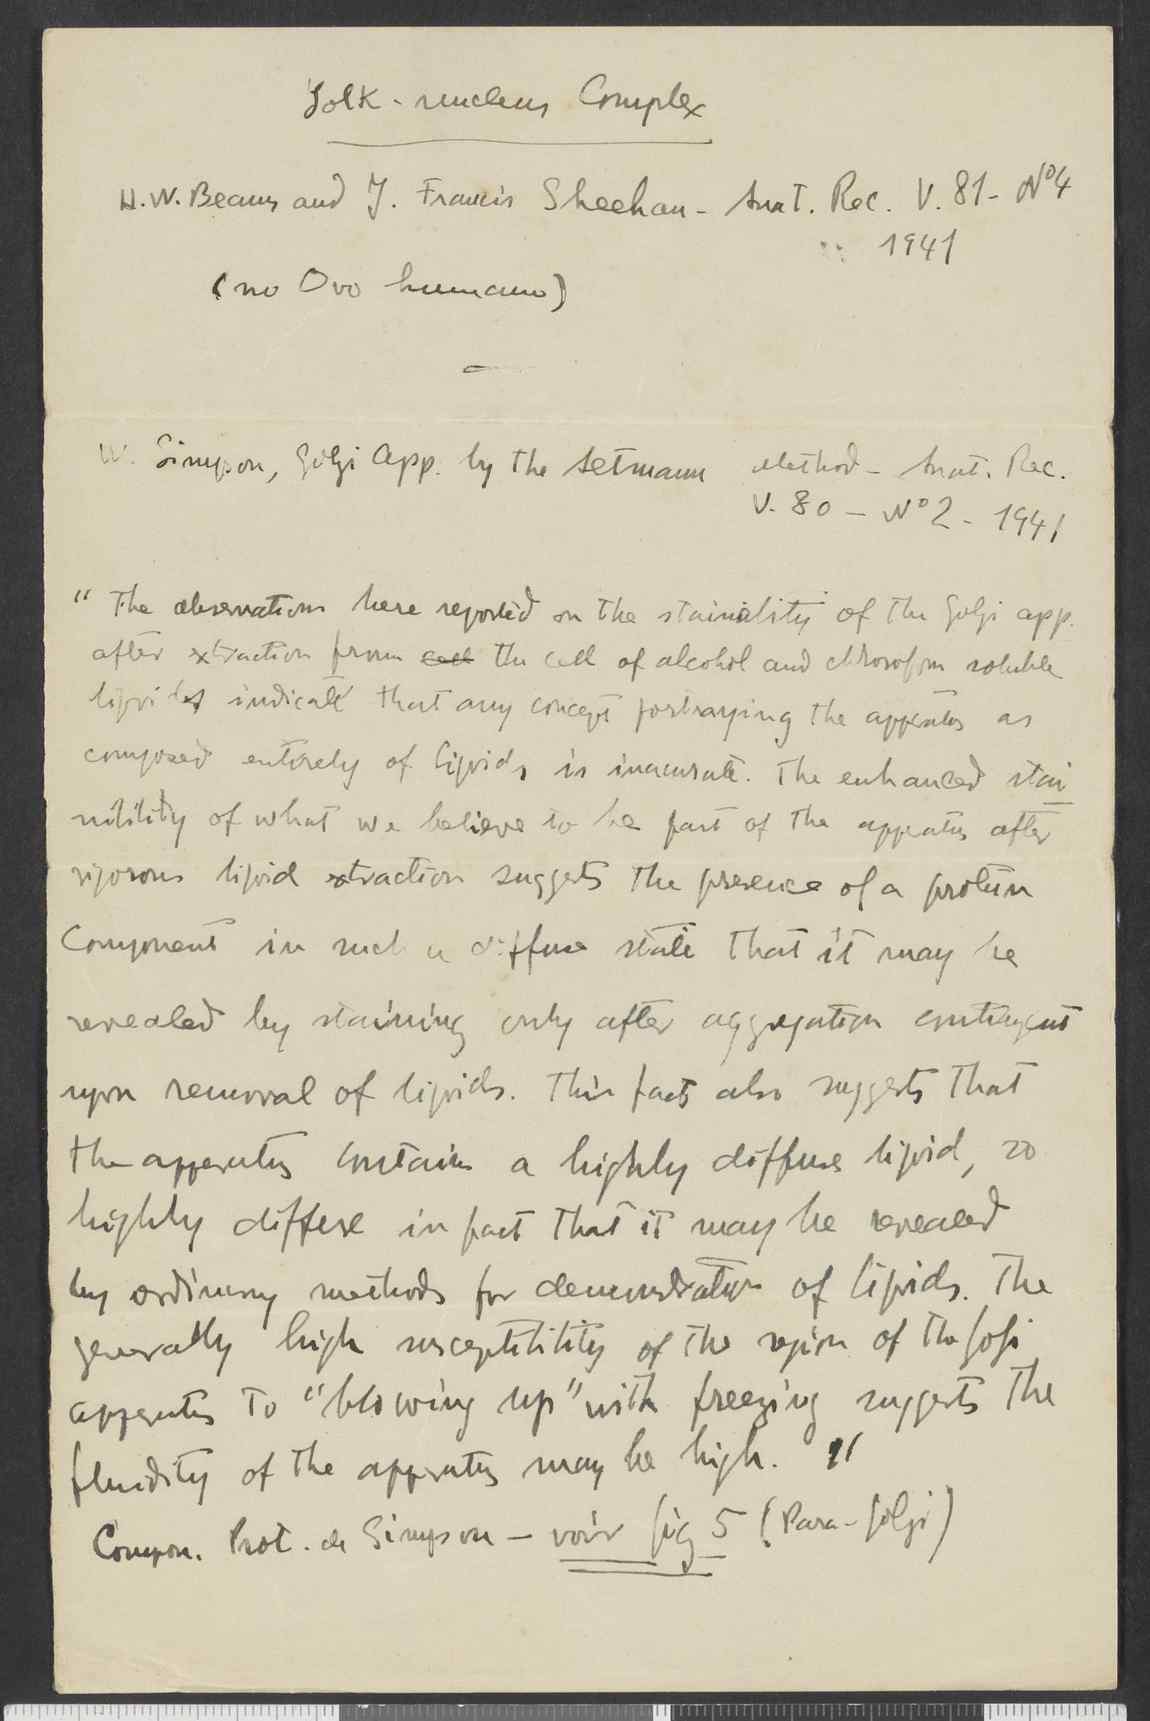 Yolk-nucleus Complex
H.W. Beams and J. Francis Sheehan - Anat. Rec. V. 81 - Nº4
1941
(no Ovo humano)
W. Simpson, Golgi App. by the Altmann Method - Anat. Rec.
V. 80 - Nº2 - 1941
" The observations here reported on the stainability of the Golgi app.
after extraction from cell the cell of alcohol and chloroform soluble
lipids indicate that any concept portraying the apparatus as
composed entirely of lipids is inacurate. The enhanced stai
nability of what we believe to be part of the apparatus after
rigorous lipid extraction suggests the presence of a protein
Component in such a diffuse state that it may be
revealed by staining only after aggregation contingent
upon removal of lipids. This facts also suggests that
the apparatus contains a highly diffuse lipid, so
highly diffuse in fact that it may be revealed
by ordinary methods for demonstration of lipids. The
generally high susceptibility of the region of the Golgi
apparatus to "blowing up" with freezing suggests the
fluidity of the apparatus may be high. "
Compon. Prot. de Simpson - voir fig 5 (Para-Golgi)